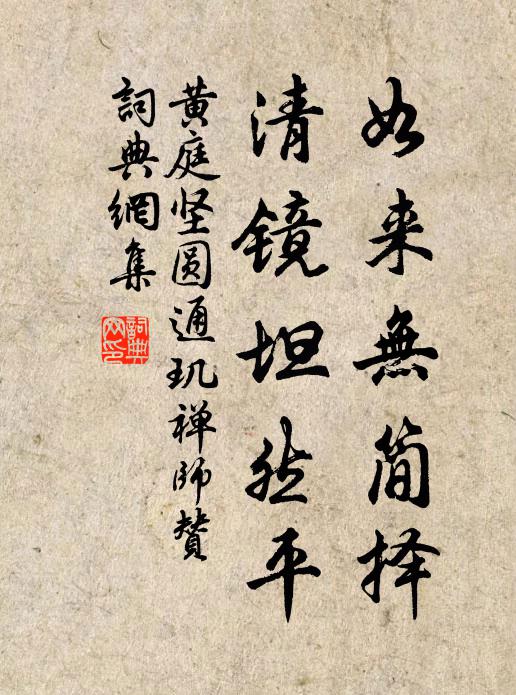 如来無简择
清镜坦然平
黄庭坚圆通玑禅师贊
詞典網集
詞典網印